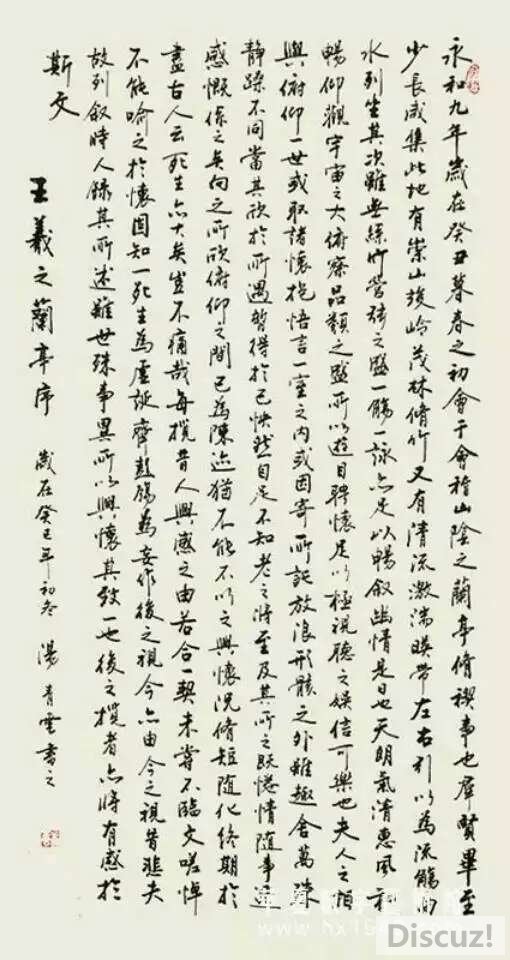 永和九年歲在癸丑暮春之初會于會稽山陰之蘭亭脩稧事也羣賢畢至
少長咸集此地有崇山峻岭茂林脩竹又有清流激湍暎帶左右引以為流觴曲
水列坐其次雖無絲竹管弦之盛一觴一詠亦足以暢叙幽情是日也天朗氣清惠風和
暢仰觀宇宙之大俯察品類之盛所以遊目騁懷足以極視聽之娛信可樂也夫人之相
與俯仰一世或取諸懷抱悟言一室之內或因寄所託放浪形骸之外雖趣舍萬殊
静躁不同當其欣於所遇暫得於己怏然自足不知老之將至及其所之既惓情隨事遷
感慨係之矣向之所欣俯仰之間已為陳迹猶不能不以之興懷況脩短隨化終期於
盡古人云死生亦大矣豈不痛哉每攬昔人興感之由若合一契未嘗不臨文嗟悼
不能喻之於懷固知一死生為虛誕齊彭殤為妄作後之視今亦由今之視昔悲夫
故列叙時人錄其所述雖世殊事異所以興懷其致一也後之攬者亦將有感於
斯文
王羲之蘭亭序 歲在癸巳年初冬 湯青雲書之
Discuz!